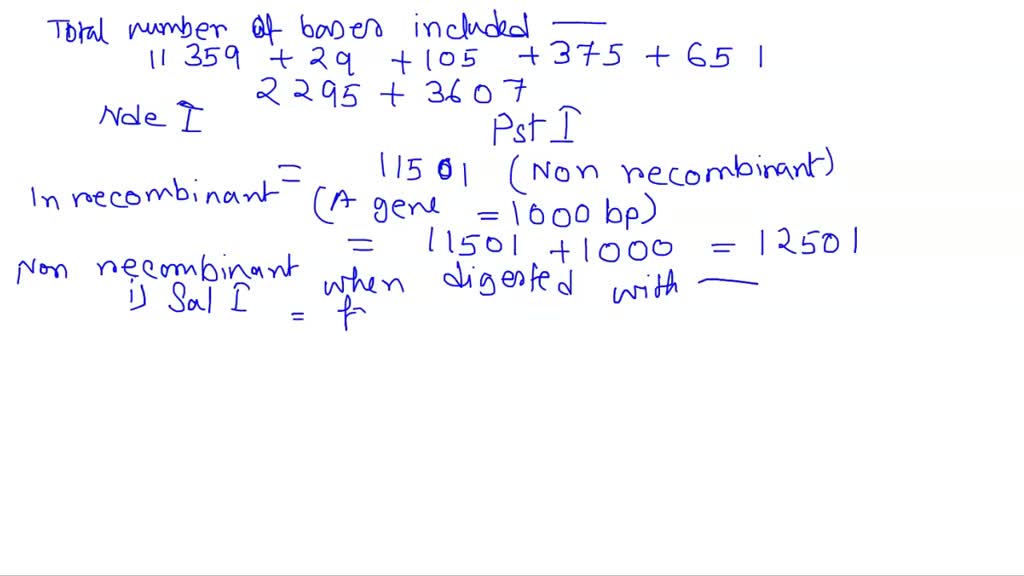 Total number of bases included —
11 359 + 29 + 105 + 375 + 651
2295 + 3607
Nde I Pst I
In recombinant = 11501 (Non recombinant)
(A gene = 1000 bp)
= 11501 + 1000 = 12501
Non recombinant when digested with —
i) Sal I = f